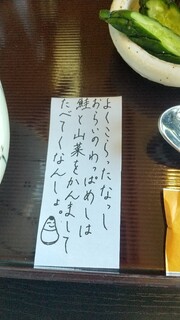 よくこらったなっし
おらいのわっぱめしは
鮭と山菜をかんまして
たべてくなんしょ。